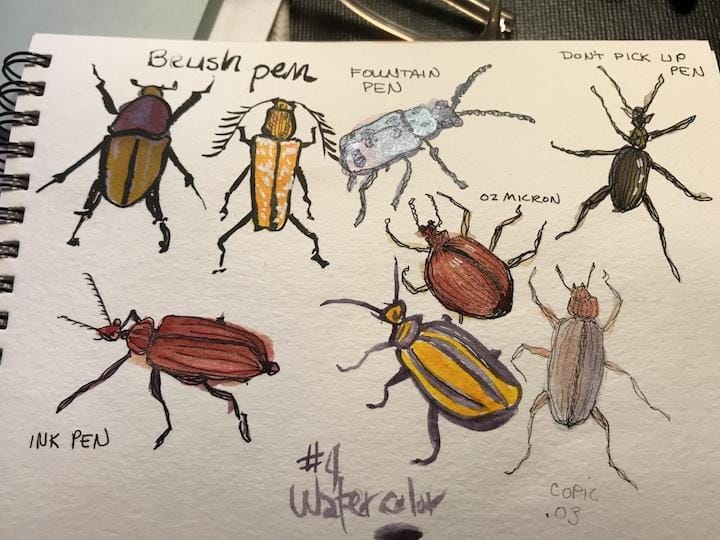 Brush pen
FOUNTAIN
PEN
DON'T PICK UP
PEN
02 MICRON
INK PEN
#4
Watercolor
COPIC
.03